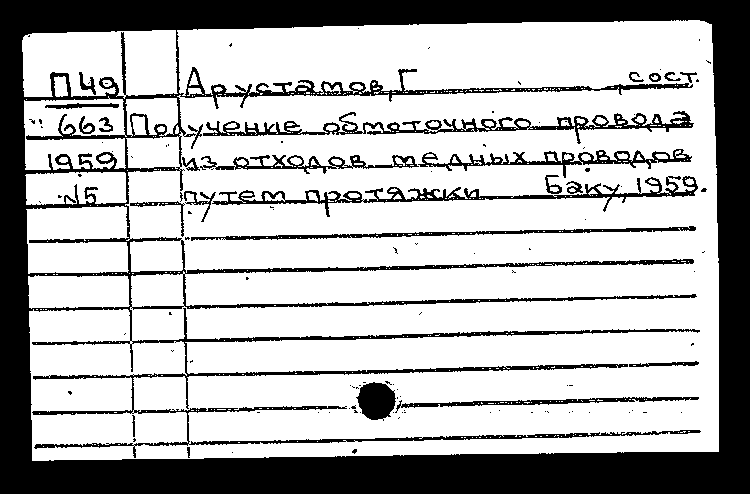 П49 Арустамов, Г сост.
663 Получение обмоточного провода
1959 из отходов медных проводов
N5 путем протяжки Баку, 1959.